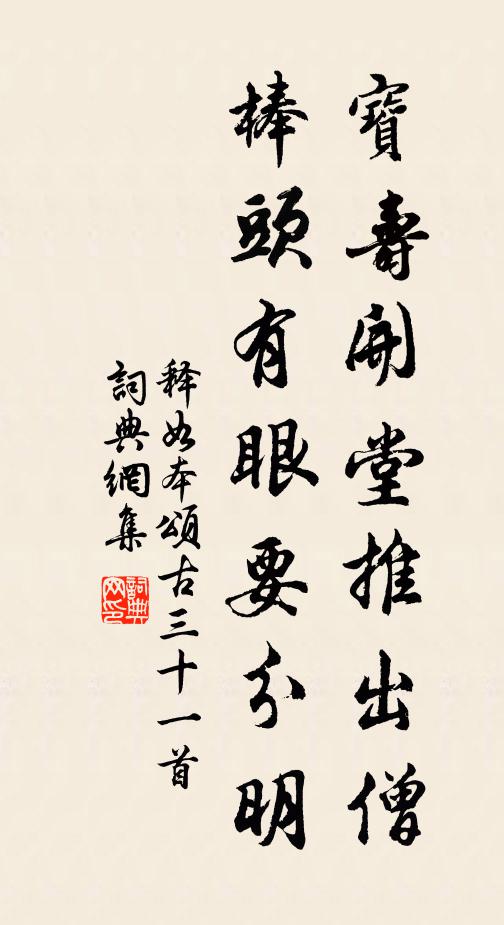 寶壽開堂推出僧
棒頭有眼要分明
释如本頌古三十一首
詞典網集
詞典网印